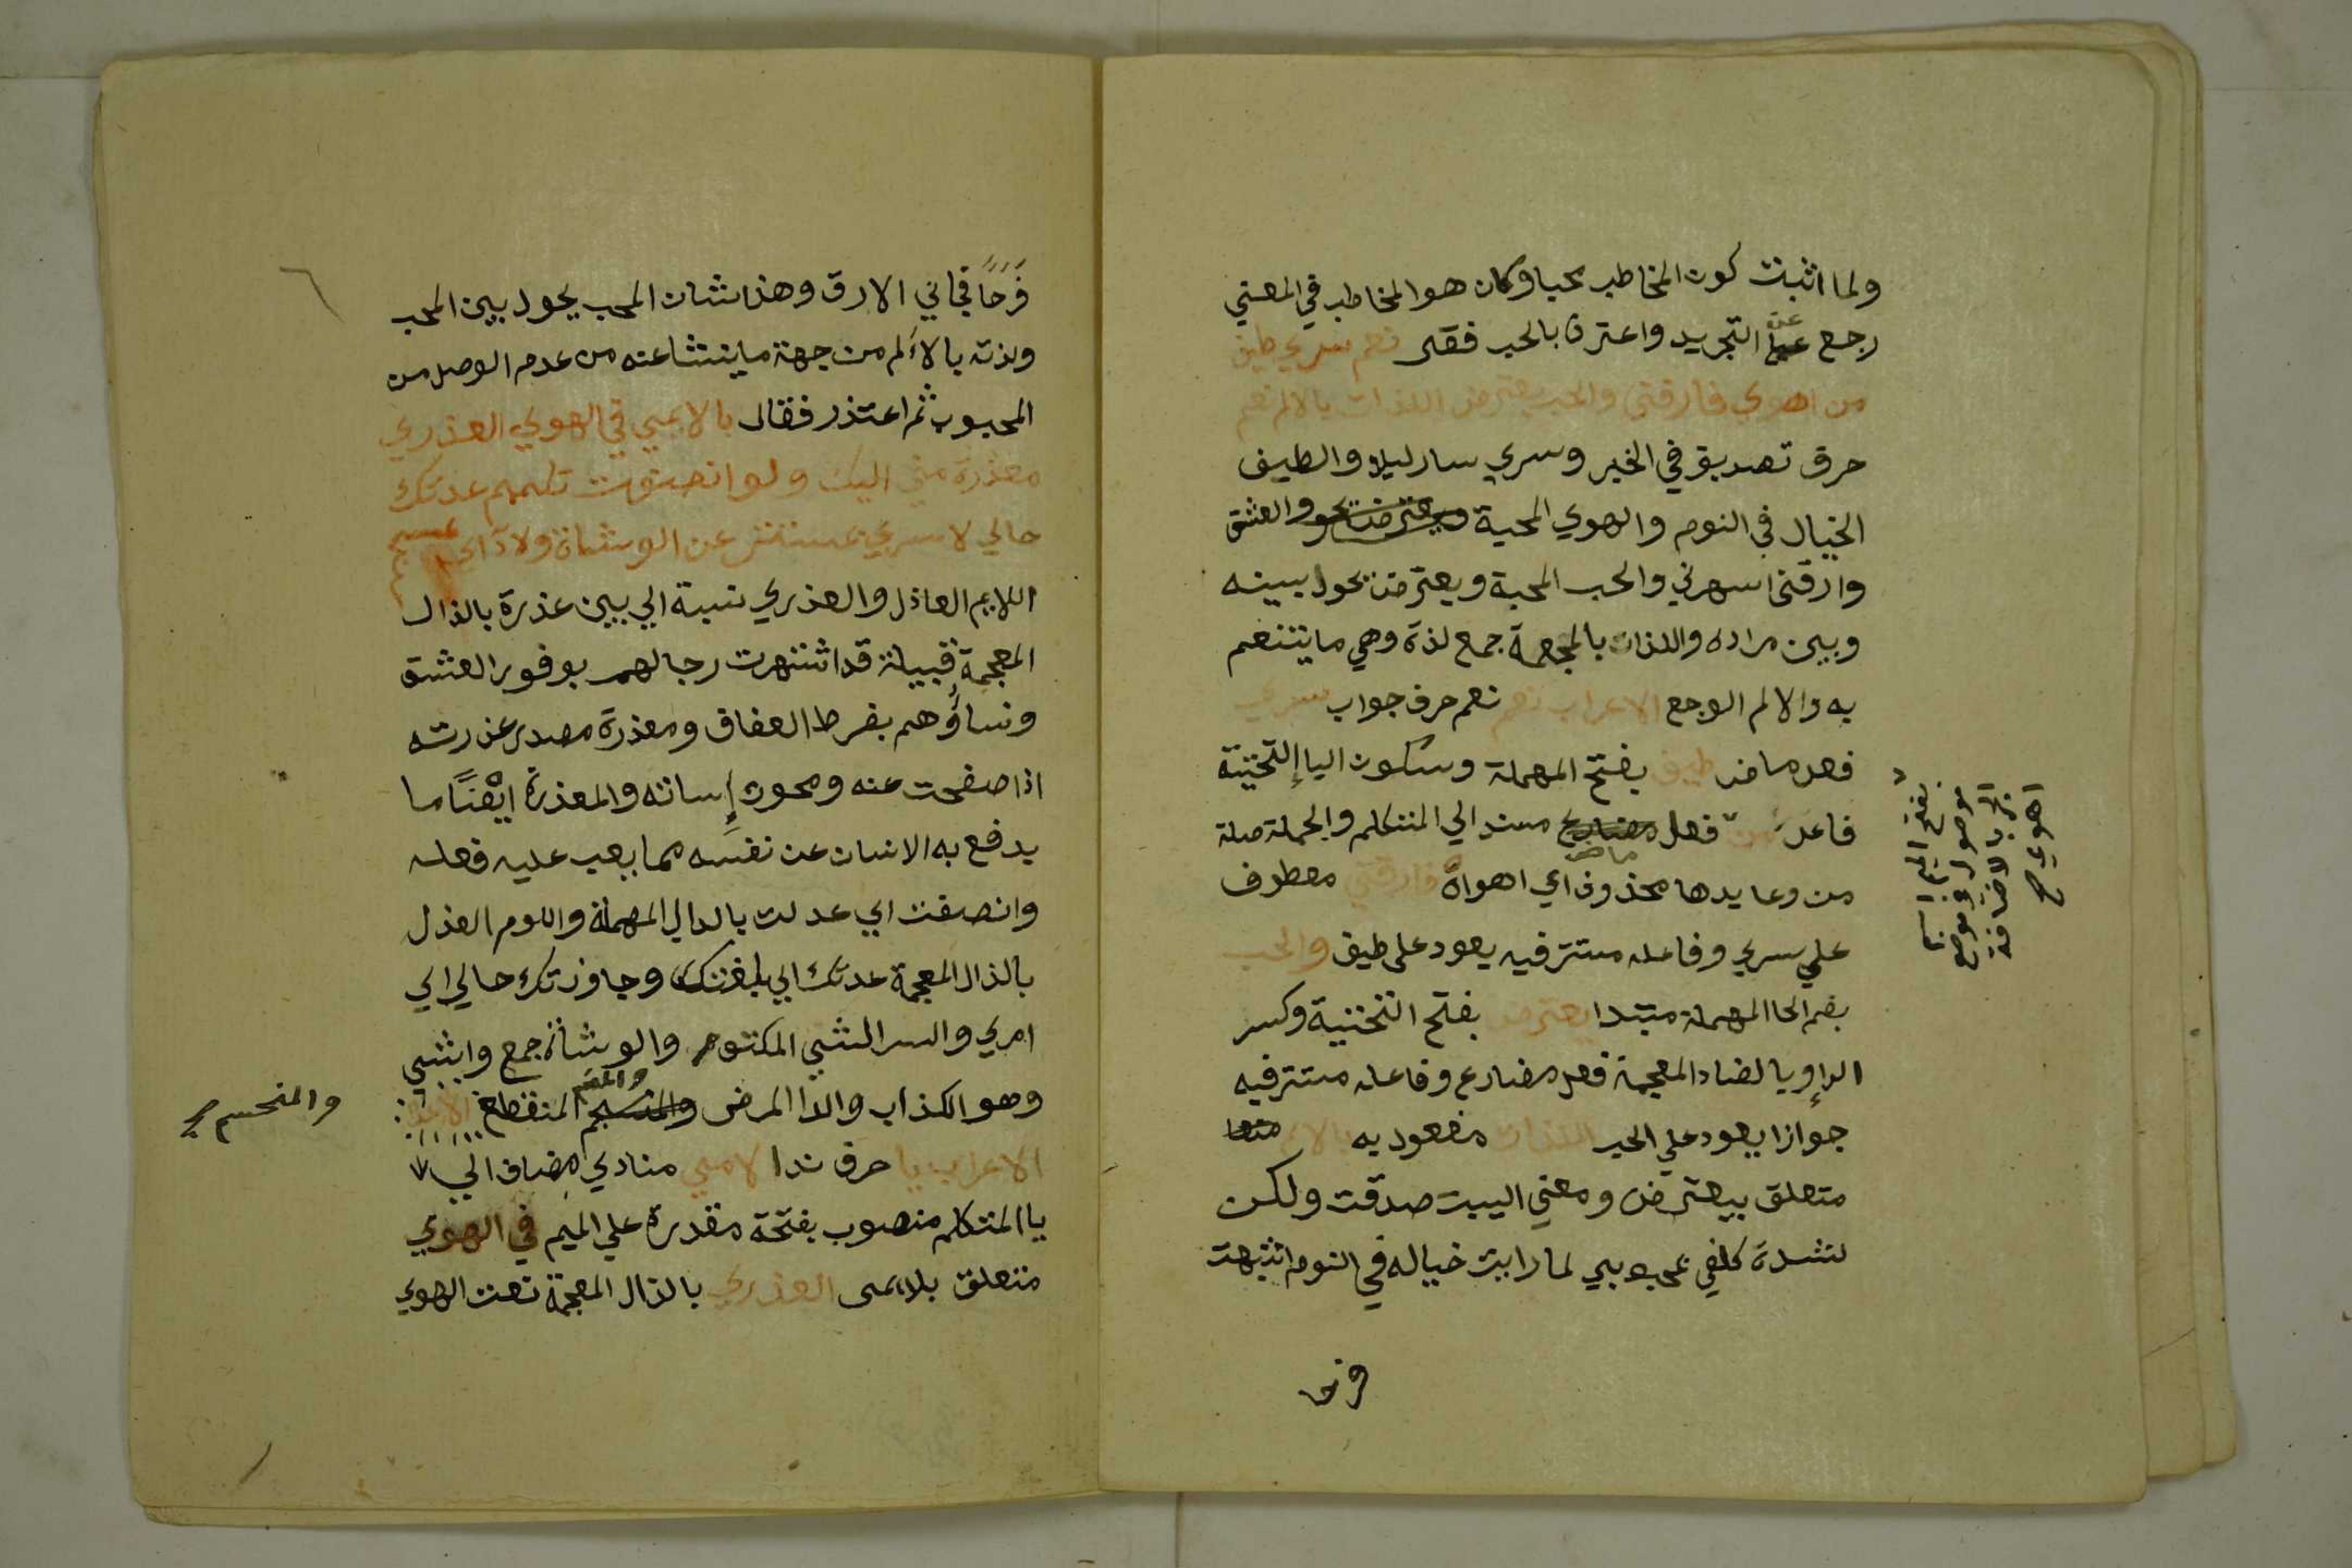 ولما اثبت كون المخاطب محبا وكان هو المخاطب في المعني
رجع عن التجريد واعترف بالحب فقال نعم سري طيف
من اهوي فارقني والحب يعترض اللذات بالالم نعم
حرف تصديق في الخبر وسري سار ليلا والطيف
الخيال في النوم والهوي المحبة والعشق
وارقني اسهرني والحب المحبة ويعترض يحول بينه
وبين مراده واللذات بالمعجمة جمع لذة وهي ما يتنعم
به والالم الوجع الاعراب نعم نعم حرف جواب سري
فعل ماض طيف بفتح المهملة وسكون اليا التحتية
فاعل من فعل مضارع مسند الي المتكلم والجملة صلة
من وعايدها محذوف اي اهواه فارقني معطوف
ماض
علي سري وفاعله مستتر فيه يعود علي طيف والحب
بضم الحا المهملة مبتدا يعترض بفتح التحتية وكسر
الرا وبالضاد المعجمة فعل مضارع وفاعله مستتر فيه
جوازا يعود علي الحب اللذات مفعول به بالالم
متعلق بيعترض ومعني البيت صدقت ولكن
لشدة كلفي بمحبوبي لما رايت خياله في النوم انتبهت
فرحا
بفتح الميم اسم
موصول في موضع
جر بالاضافة
اهوي
فَرَحًا فجاني الارق وهذا شان الحب يحول بين المحب
ولذته بالالم من جهة ما ينشا عنه من عدم الوصل من
المحبوب ثم اعتذر فقال يا لايمي في الهوي العذري
معذرة مني اليك ولو انصفت تلم عدتك
حالي لا سري بمستتر عن الوشاة ولا دائي بمنحسم
اللايم العاذل والعذري نسبة الي بني عذرة بالذال
المعجمة قبيلة قد اشتهرت رجالهم بوفور العشق
ونساؤهم بفرط العفاف ومعذرة مصدر عذرته
اذا صفحت عنه ومحوت إساته والمعذرة ايضًا ما
يدفع به الانسان عن نفسه مما يعيب عليه فعله
وانصفت اي عدلت بالدال المهملة واللوم العذل
بالذال المعجمة عدتك اي بلغتك وجاوزتك حالي اي
امري والسر الشي المكتوم والوشاة جمع واشي
وهو الكذاب والدا المرض المنقطع
والمنحسم
الاعراب يا حرف ندا لايمي منادي مضاف الي
يا المتكلم منصوب بفتحة مقدرة علي الميم في الهوي
متعلق بلايمي العذري بالذال المعجمة نعت الهوي